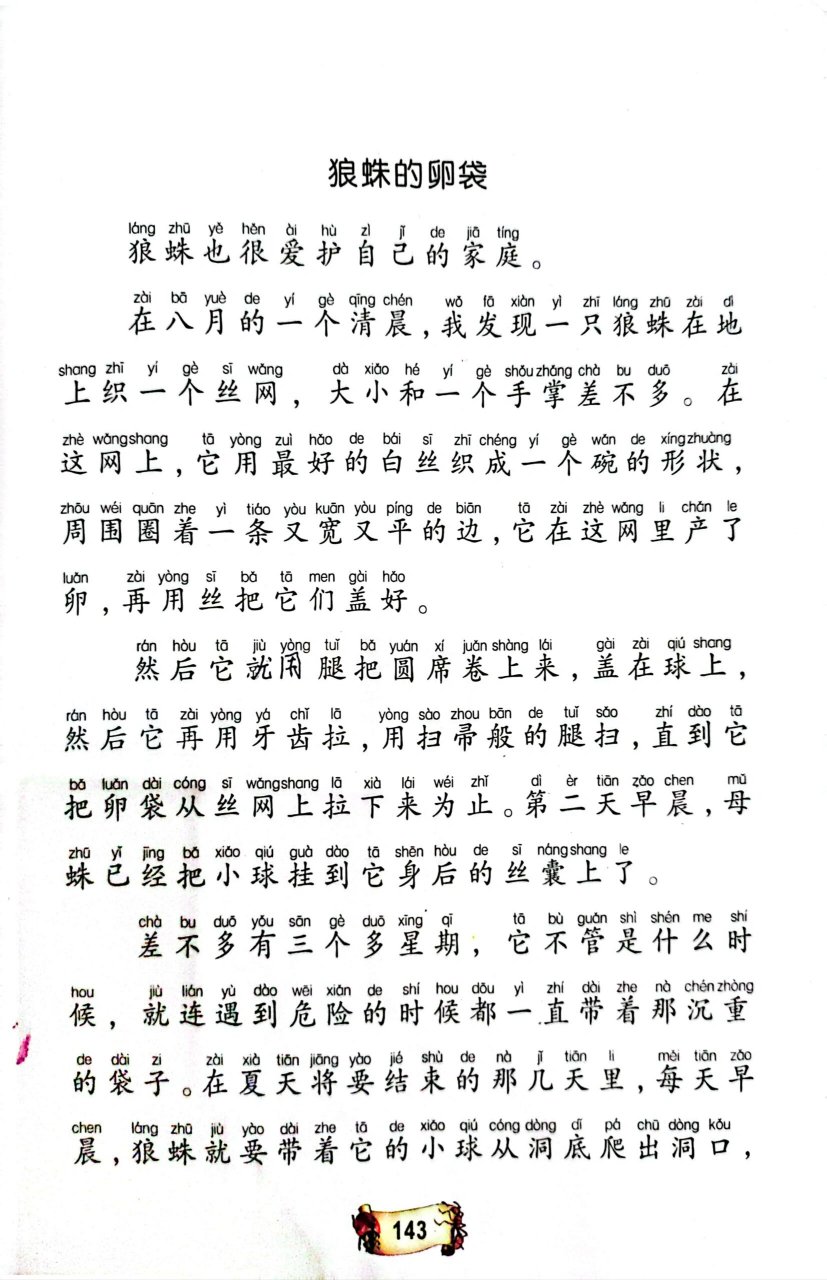 狼蛛的卵袋
láng zhū yě hěn ài hù zì jǐ de jiā tíng
狼蛛也很爱护自己的家庭。
zài bā yuè de yí gè qīng chén wǒ fā xiàn yì zhī láng zhū zài dì
在八月的一个清晨,我发现一只狼蛛在地
shang zhī yí gè sī wǎng dà xiǎo hé yí gè shǒu zhǎng chà bu duō zài
上织一个丝网,大小和一个手掌差不多。在
zhè wǎng shang tā yòng zuì hǎo de bái sī zhī chéng yí gè wǎn de xíng zhuàng
这网上,它用最好的白丝织成一个碗的形状,
zhōu wéi quān zhe yì tiáo yòu kuān yòu píng de biān tā zài zhè wǎng li chǎn le
周围圈着一条又宽又平的边,它在这网里产了
luǎn zài yòng sī bǎ tā men gài hǎo
卵,再用丝把它们盖好。
rán hòu tā jiù yòng tuǐ bǎ yuán xí juǎn shàng lái gài zài qiú shang
然后它就用腿把圆席卷上来,盖在球上,
rán hòu tā zài yòng yá chǐ lā yòng sào zhou bān de tuǐ sǎo zhí dào tā
然后它再用牙齿拉,用扫帚般的腿扫,直到它
bǎ luǎn dài cóng sī wǎng shang lā xià lái wéi zhǐ dì èr tiān zǎo chen mǔ
把卵袋从丝网上拉下来为止。第二天早晨,母
zhū yǐ jīng bǎ xiǎo qiú guà dào tā shēn hòu de sī náng shang le
蛛已经把小球挂到它身后的丝囊上了。
chà bu duō yǒu sān gè duō xīng qī tā bù guǎn shì shén me shí
差不多有三个多星期,它不管是什么时
hou jiù lián yù dào wēi xiǎn de shí hou dōu yì zhí dài zhe nà chén zhòng
候,就连遇到危险的时候都一直带着那沉重
de dài zi zài xià tiān jiāng yào jié shù de nà jǐ tiān li měi tiān zǎo
的袋子。在夏天将要结束的那几天里,每天早
chen láng zhū jiù yào dài zhe tā de xiǎo qiú cóng dòng dǐ pá chū dòng kǒu
晨,狼蛛就要带着它的小球从洞底爬出洞口,
143